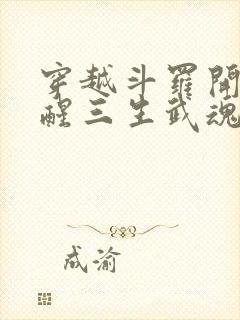 穿越斗羅開
醒三生武魂
成渝